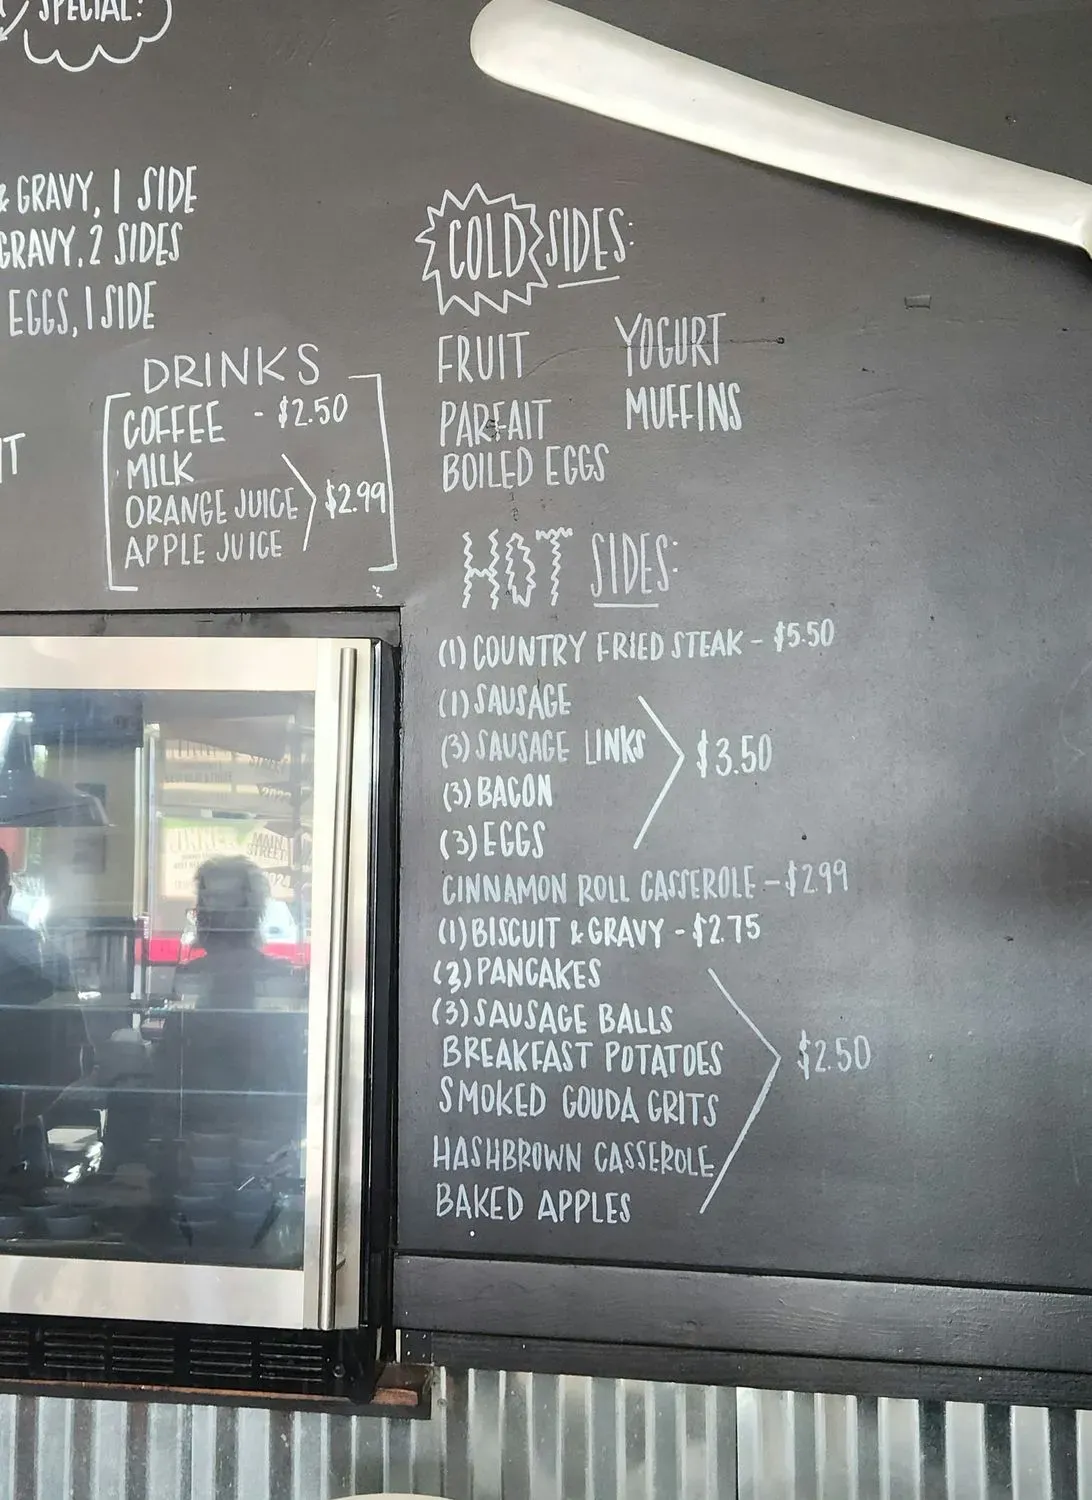 SPECIAL:
& GRAVY, 1 SIDE
GRAVY, 2 SIDES
EGGS, 1 SIDE
DRINKS
COFFEE - $2.50
MILK
ORANGE JUICE $2.99
APPLE JUICE
COLD SIDES:
FRUIT YOGURT
PARFAIT MUFFINS
BOILED EGGS
HOT SIDES:
(1) COUNTRY FRIED STEAK - $5.50
(1) SAUSAGE
(3) SAUSAGE LINKS $3.50
(3) BACON
(3) EGGS
CINNAMON ROLL CASSEROLE - $2.99
(1) BISCUIT & GRAVY - $2.75
(3) PANCAKES
(3) SAUSAGE BALLS
BREAKFAST POTATOES $2.50
SMOKED GOUDA GRITS
HASHBROWN CASSEROLE
BAKED APPLES